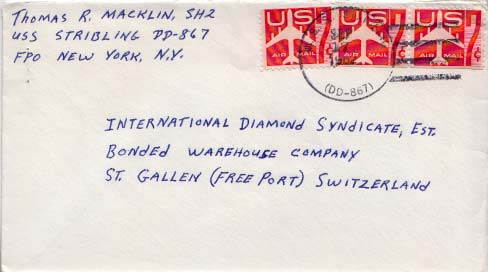 THOMAS R. MACKLIN, SH2
USS STRIBLING DD-867
FPO NEW YORK, N.Y.
US 7¢ AIR MAIL
US 7¢ AIR MAIL
US 7¢ AIR MAIL
SEP
(DD-867)
INTERNATIONAL DIAMOND SYNDICATE, EST.
BONDED WAREHOUSE COMPANY
ST. GALLEN (FREE PORT) SWITZERLAND